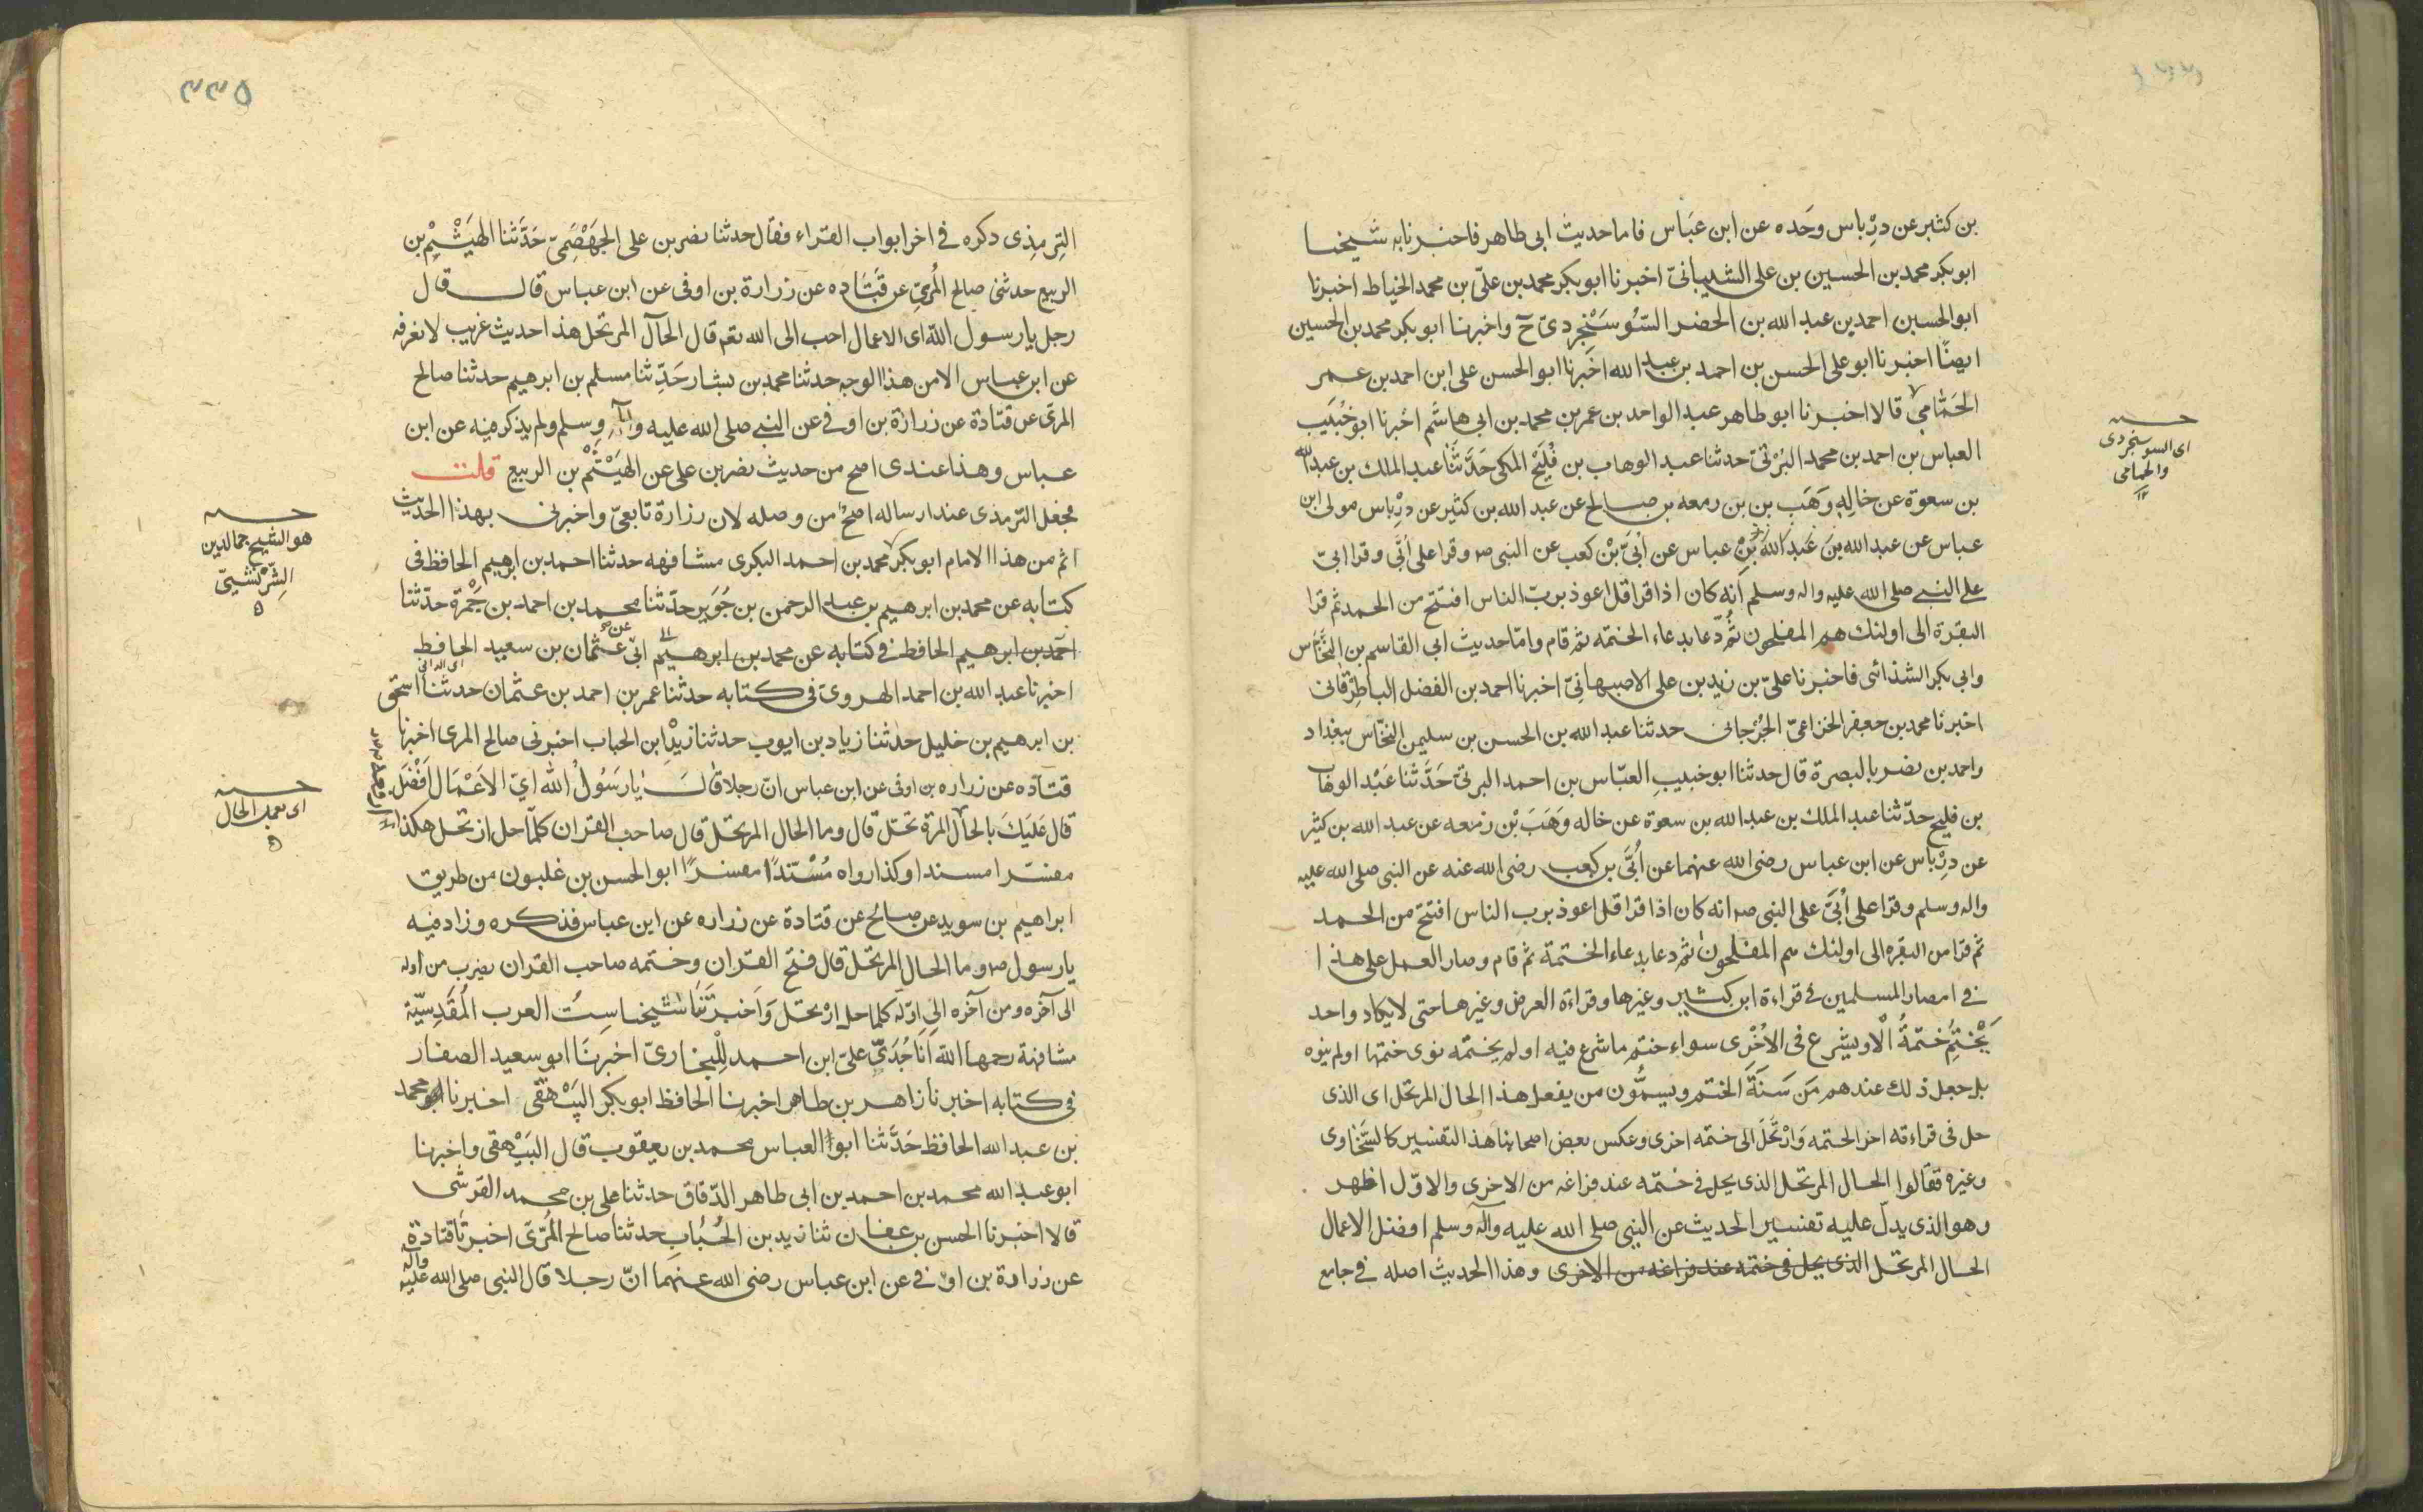 بن كثير عن درباس وحده عن ابن عباس فاما حديث ابى طاهر فاخبرنا به شيخنا
ابو بكر محمد بن الحسين بن على الشيبانى اخبرنا ابو بكر محمد بن على بن محمد الخياط اخبرنا
ابو الحسين احمد بن عبد الله بن الخضر السوسنجردى ح واخبرنا ابو بكر محمد بن الحسين
ايضا اخبرنا ابو على الحسن بن احمد بن عبد الله اخبرنا ابو الحسن على ابن احمد بن عمر
الحمامى قالا اخبرنا ابو طاهر عبد الواحد بن عمر بن محمد بن ابى هاشم اخبرنا ابو خبيب
العباس بن احمد بن محمد البرتى حدثنا عبد الوهاب بن فليح المكى حدثنا عبد الملك بن عبد الله
بن سعوة عن خاله وهب بن بن زمعه بن صالح عن عبد الله بن كثير عن درباس مولى ابن
عباس عن عبد الله بن عبد الله بن عباس عن ابى بن كعب عن النبى صم وقرا على ابى وقرا ابى
على النبى صلى الله عليه واله وسلم انه كان اذا قرا قل اعوذ برب الناس افتتح من الحمد ثم قرا
البقرة الى اولئك هم المفلحون ثم دعا بدعاء الختمه ثم قام واما حديث ابى القاسم بن النخاس
وابى بكر الشذائى فاخبرنا على بن زيد بن على الاصبهانى اخبرنا احمد بن الفضل الباطرقانى
اخبرنا محمد بن جعفر الخزاعى الجرجانى حدثنا عبد الله بن الحسن بن سليمن النخاس ببغداد
واحمد بن نصر بالبصرة قال حدثنا ابو خبيب العباس بن احمد البرتى حدثنا عبد الوهاب
بن فليح حدثنا عبد الملك بن عبد الله بن سعوة عن خاله وهب بن زمعه عن عبد الله بن كثير
عن درباس عن ابن عباس رضى الله عنهما عن ابى بن كعب رضى الله عنه عن النبى صلى الله عليه
واله وسلم وقرا على ابى على النبى صم انه كان اذا قرا قل اعوذ برب الناس افتتح من الحمد
ثم قرا من البقره الى اولئك هم المفلحون ثم دعا بدعاء الختمة ثم قام وصار العمل على هذا
فى امصار المسلمين فى قراءة ابن كثير وغيرها وقراءة العرض وغيرها حتى لا يكاد واحد
يختم ختمة الا ويشرع فى الاخرى سواء ختم ما شرع فيه او لم يختمه نوى ختمها او لم ينوه
بل جعل ذلك عندهم من سنة الختم ويسمون من يفعل هذا الحال المرتحل اى الذى
حل فى قراءته اخر الختمه وارتحل الى ختمه اخرى وعكس بعض اصحابنا هذا التفسير كالسخاوى
وغيره فقالوا الحال المرتحل الذى يحل فى ختمه عند فراغه من الاخرى والاول اظهر
وهو الذى يدل عليه تفسير الحديث عن النبى صلى الله عليه وآله وسلم افضل الاعمال
الحال المرتحل الذى يحل فى ختمه عند فراغه من الاخرى وهذا الحديث اصله فى جامع
اى السوسنجردى
والحمامى
١٢
٣٣٥
الترمذى ذكره فى اخر ابواب القراء فقال حدثنا نصر بن على الجهضمى حدثنا الهيثم بن
الربيع حدثنى صالح المرى عن قتاده عن زرارة بن اوفى عن ابن عباس قال قال
رجل يا رسول الله اى الاعمال احب الى الله تع قال الحال المرتحل هذا حديث غريب لا نعرفه
عن ابن عباس الا من هذا الوجه حدثنا محمد بن بشار حدثنا مسلم بن ابرهيم حدثنا صالح
المرى عن قتادة عن زرارة بن اوفى عن النبى صلى الله عليه وآله وسلم ولم يذكر فيه عن ابن
عباس وهذا عندى اصح من حديث نصر بن على عن الهيثم بن الربيع قلت
فجعل الترمذى عنده ارساله اصح من وصله لان زرارة تابعى واخبرنى بهذا الحديث
اتم من هذا الامام ابو بكر محمد بن احمد البكرى مشافهه حدثنا احمد بن ابرهيم الحافظ فى
كتابه عن محمد بن ابرهيم بن عبد الرحمن بن جوير حدثنا محمد بن احمد بن جمرة حدثنا
احمد بن ابرهيم الحافظ فى كتابه عن محمد بن ابرهيم ابى عن عثمان بن سعيد الحافظ
اى الدانى
اخبرنا عبد الله بن احمد الهروى فى كتابه حدثنا عمر بن احمد بن عثمان حدثنا اسحق
بن ابرهيم بن خليل حدثنا زياد بن ايوب حدثنا زيد ابن الحباب اخبرنى صالح المرى اخبرنا
قتاده عن زراره بن اوفى عن ابن عباس ان رجلا قال يا رسول الله اى الاعمال افضل
قال عليك بالحال المرتحل قال وما الحال المرتحل قال صاحب القران كلما حل ارتحل هكذا
مفسرا مسندا وكذا رواه مسندا مفسرا ابو الحسن بن غلبون من طريق
ابراهيم بن سويد عن صالح عن قتادة عن زراره عن ابن عباس فذكره وزاد فيه
يا رسول صم وما الحال المرتحل قال فتح القران وختمه صاحب القران يضرب من اوله
الى آخره ومن آخره الى اوله كلما حل ارتحل واخبرتنا شيخنا ست العرب المقدسية
مشافهة رحمها الله انا جدى على ابن احمد للبخارى اخبرنا ابو سعيد الصفار
فى كتابه اخبرنا زاهر بن طاهر اخبرنا الحافظ ابو بكر البيهقى اخبرنا ابو محمد
بن عبد الله الحافظ حدثنا ابو العباس محمد بن يعقوب قال البيهقى واخبرنا
ابو عبد الله محمد بن احمد بن ابى طاهر الدقاق حدثنا على بن محمد القرشى
قالا اخبرنا الحسن بن عفان ثنا زيد بن الحباب حدثنا صالح المرى اخبرنا قتادة
عن زرارة بن اوفى عن ابن عباس رضى الله عنهما ان رجلا قال النبى صلى الله عليه وآله
هو الشيخ جمالدين
الشريشى
٥
اى بعمل الحال
٥